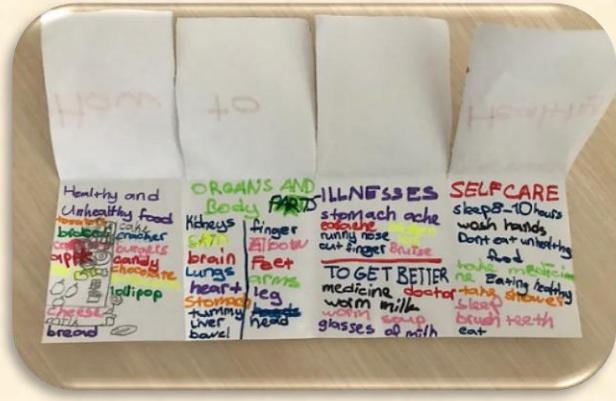 How
to
Healthy and
Unhealthy food
tomato cake
broccoli cracker
burgers
apple candy
chocolate
lollipop
cheese
bread
ORGANS AND
Body PARTS
Kidneys
skin
brain
Lungs
heart
Stomach
tummy
liver
bowel
finger
Elbow
Feet
arms
leg
head
ILLNESSES
stomach ache
earache
runny nose
cut finger Bruise
TO GET BETTER
medicine doctor
worm milk
worm soup
glasses of milk
SELFCARE
sleep 8-10 hours
wash hands
Dont eat unhealthy
food
take medici
ne Eating healthy
take shower
sleep
brush teeth
eat